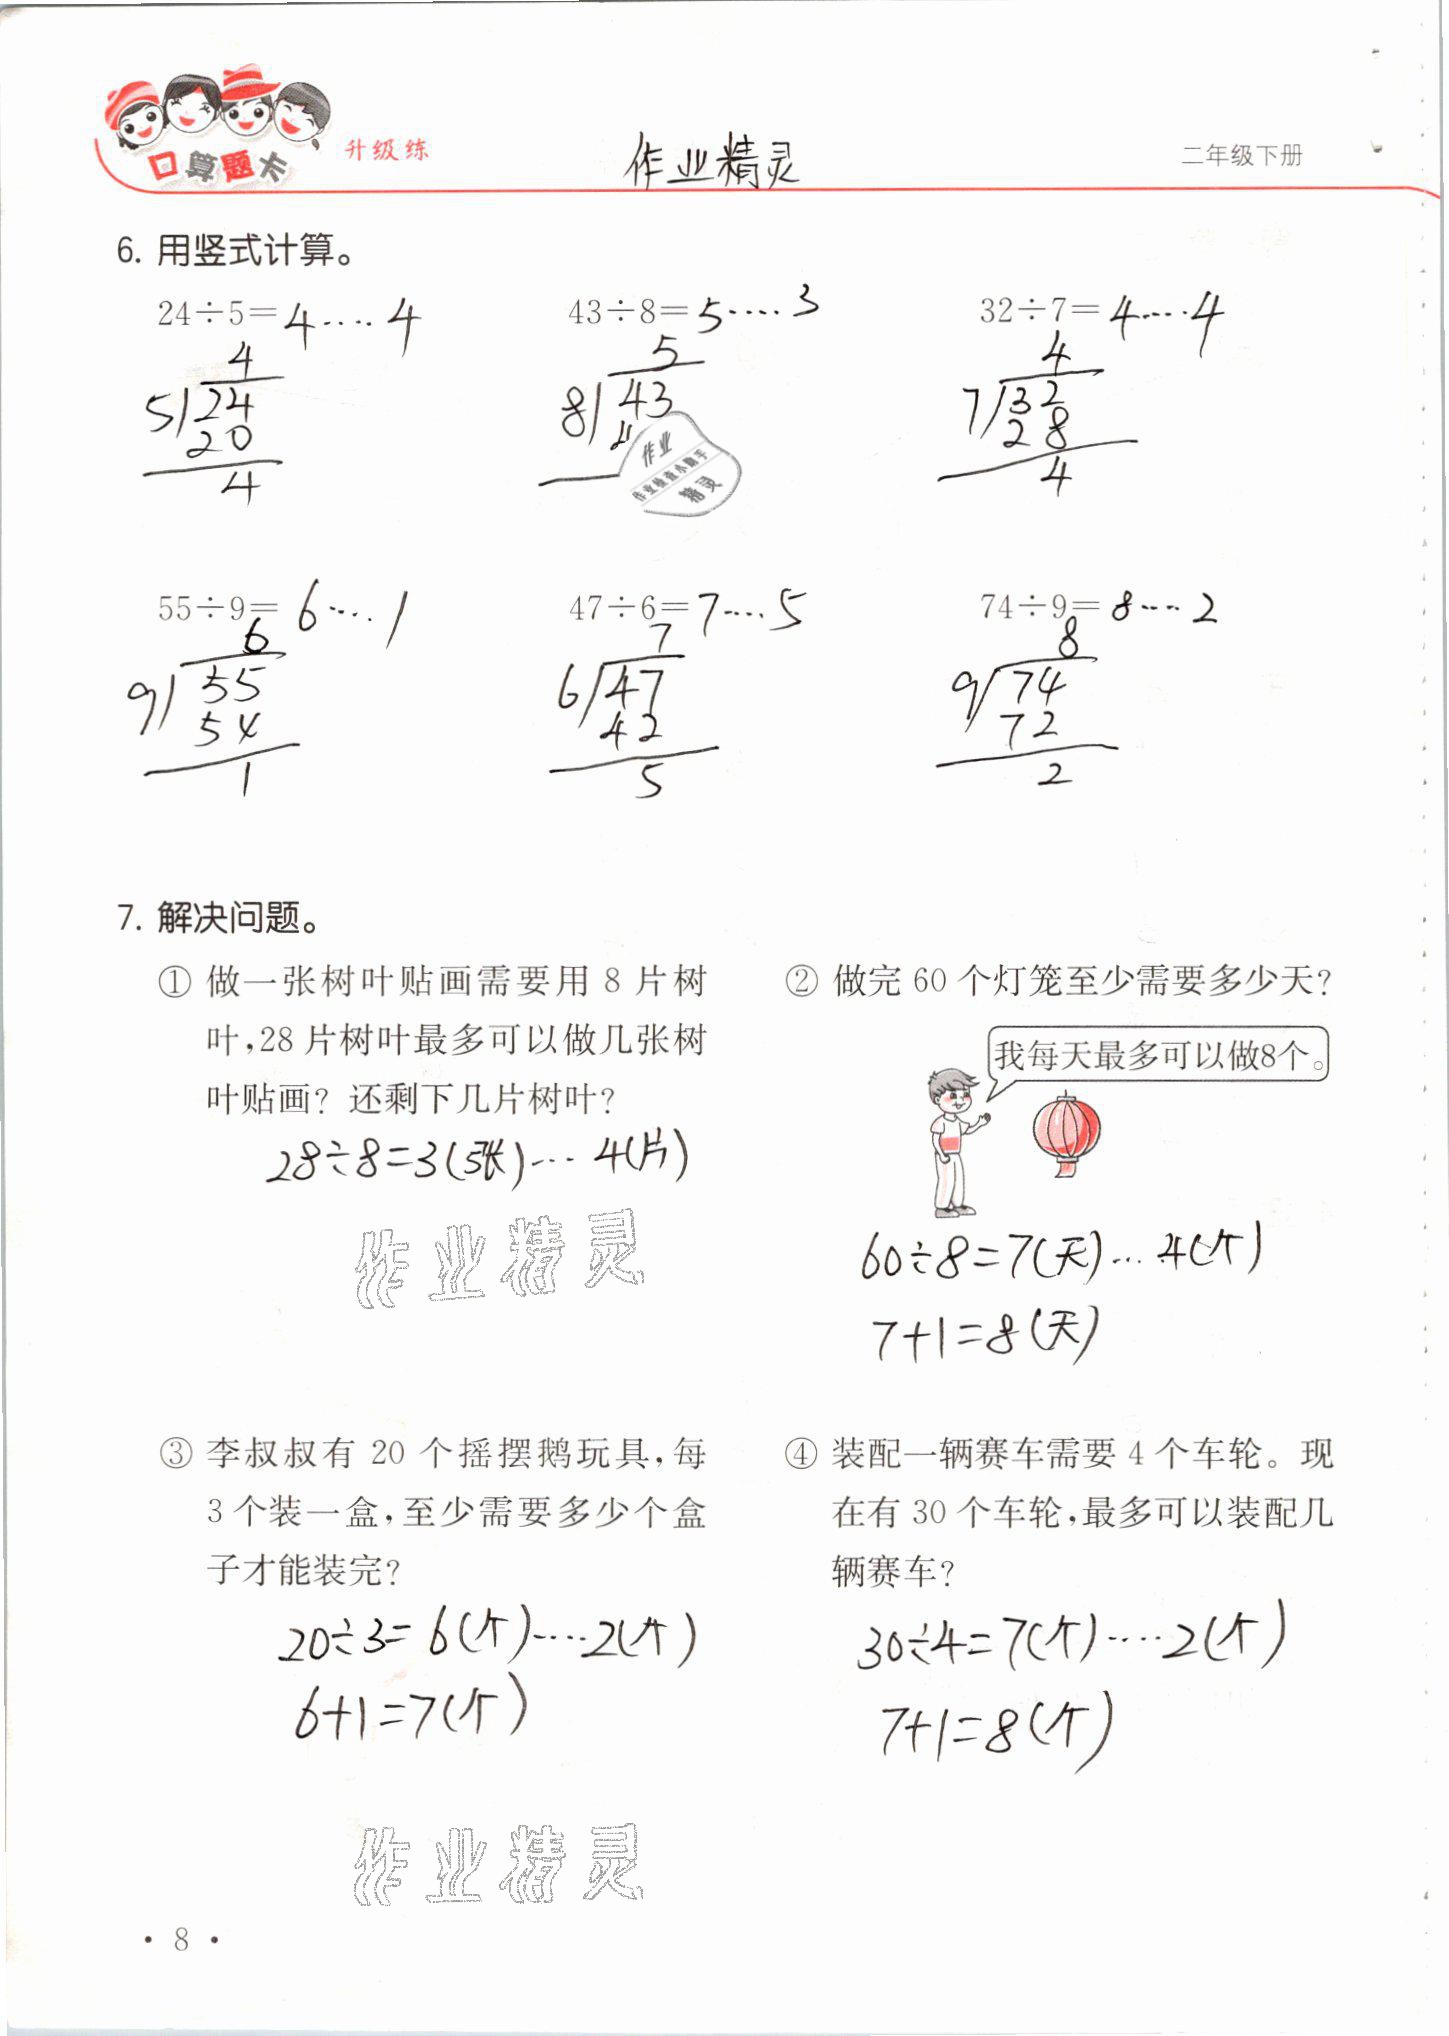 口算题卡
升级练
作业精灵
二年级下册
6. 用竖式计算。
24÷5=4····4
43÷8=5····3
32÷7=4····4
4
5
4
5 24
8 43
7 32
20
4
28
4
4
作业
作业检查小助手
精灵
55÷9=6····1
47÷6=7····5
74÷9=8····2
6
7
8
9 55
6 47
9 74
54
42
72
1
5
2
7. 解决问题。
① 做一张树叶贴画需要用 8 片树
叶,28 片树叶最多可以做几张树
叶贴画? 还剩下几片树叶?
28÷8=3(张)···4(片)
② 做完 60 个灯笼至少需要多少天?
我每天最多可以做8个。
60÷8=7(天)···4(个)
7+1=8(天)
作业精灵
③ 李叔叔有 20 个摇摆鹅玩具,每
3 个装一盒,至少需要多少个盒
子才能装完?
20÷3=6(个)····2(个)
6+1=7(个)
④ 装配一辆赛车需要 4 个车轮。现
在有 30 个车轮,最多可以装配几
辆赛车?
30÷4=7(个)····2(个)
7+1=8(个)
作业精灵
· 8 ·